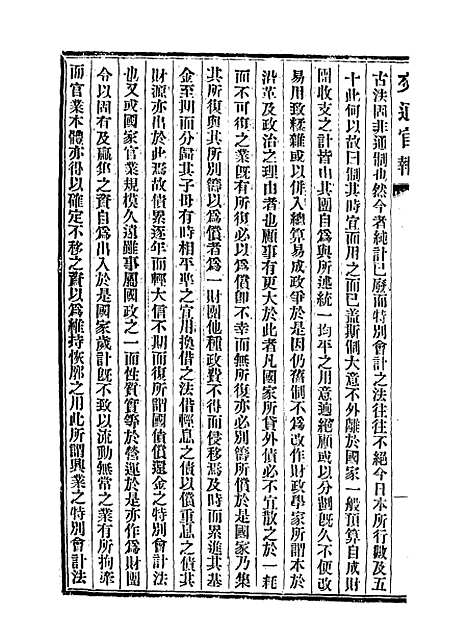 交通官報
古法固非通制也然今者純計已廢而特別會計之法往往不絕今日本所行數及五
十此何以故曰制其時宜而用之而已蓋斯制大意不外離於國家一般預算自成財
團收支之計皆由其團自爲與所遞統一均平之用意適絕顧或以分劃旣久不便改
易用致糅雜或以併入總算易成政爭於是因仍舊制不爲改作財政學家所謂本於
沿革及政治之理由者也顧事有更大於此者凡國家所貸外債必不宜散之於一耗
而不可復之業旣有所復必以爲償卽不幸而無所復亦必別籌所償於是國家乃集
其所復與其所別籌以爲償者爲一財團他種政費不得而侵移焉及時而累進其基
金至期而分歸其子母有時相平準之宜用換借之法借輕息之債以償重息之債其
財源亦出於此焉故債累逐年而輕大信不期而復所謂國債償還金之特別會計法
也又或國家官業規模久遠雖事屬國政之一而性質實等於營運於是亦作爲財團
令以固有及贏隼之資自爲出入於是國家歲計旣不致以流動無常之業有所拘牽
而官業本體亦得以確定不移之資以爲維持恢廓之用此所謂興業之特別會計法